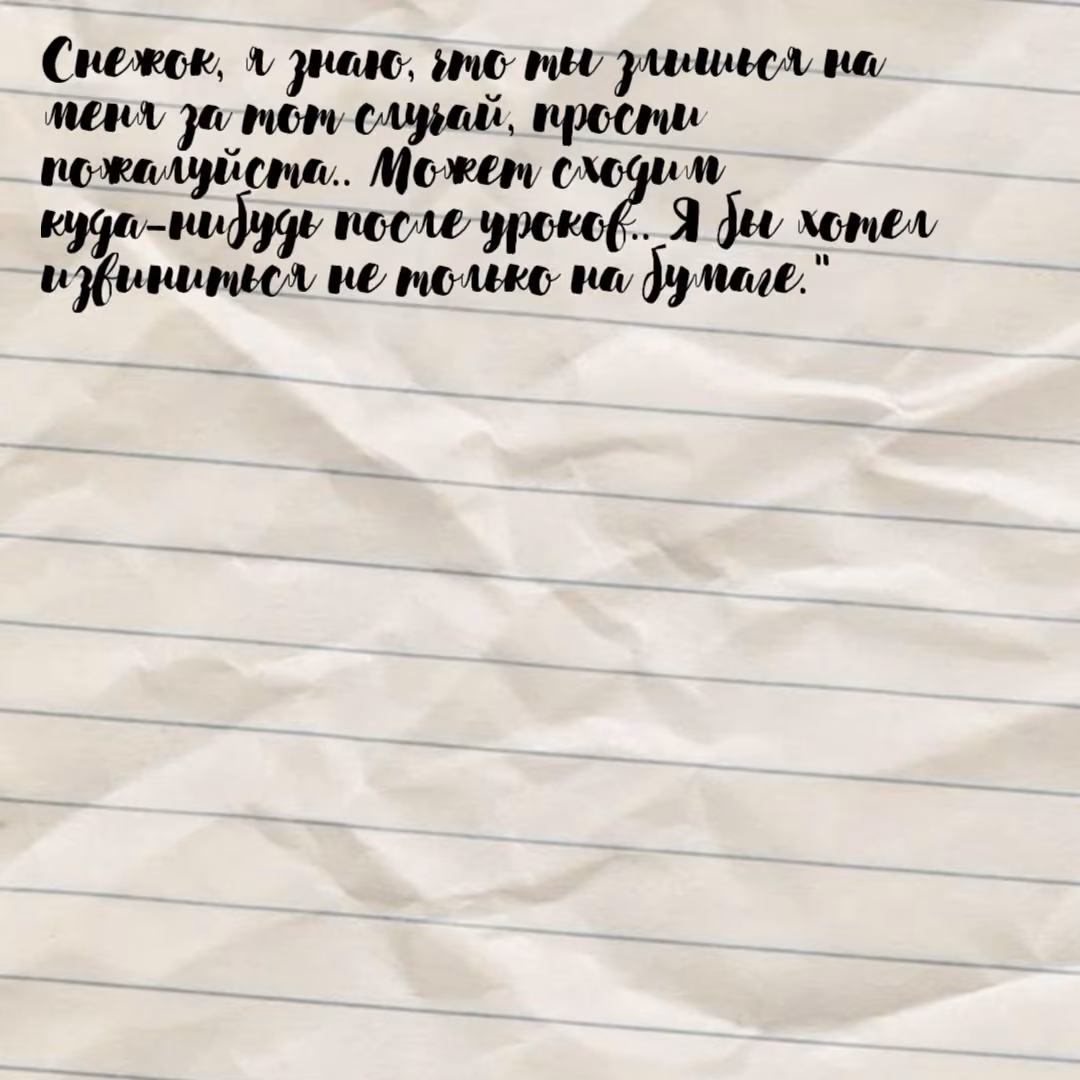 Снежок, я знаю, что ты злишься на
меня за тот случай, прости
пожалуйста.. Может сходим
куда-нибудь после уроков.. Я бы хотел
извиниться не только на бумаге."